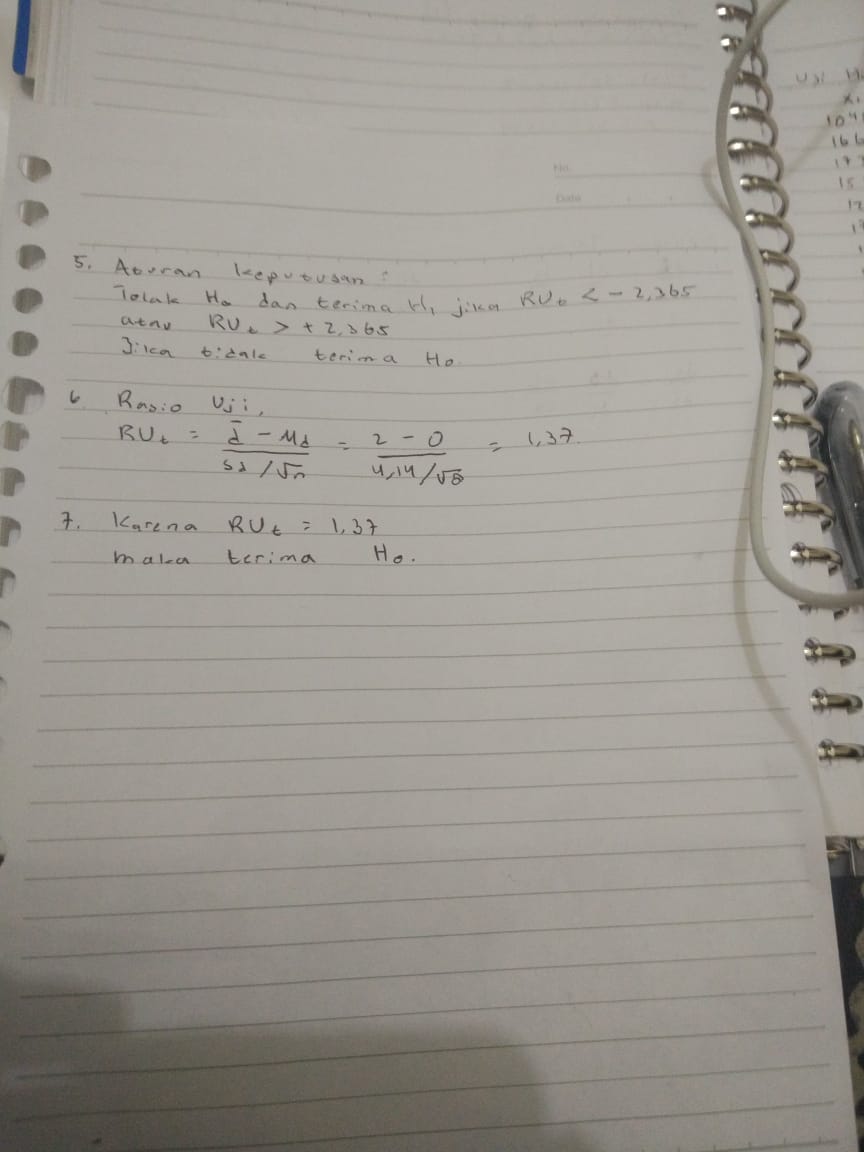 No.
Date
5. Aturan keputusan :
Tolak Ho dan terima H1 jika RUt < - 2,365
atau RUt > + 2,365
Jika tidak terima Ho
6 Rasio Uji,
RUt = d̄ - Md / sd /√n = 2 - 0 / 4,14/√8 = 1,37.
7. Karena RUt = 1,37
maka terima Ho.
Uji
X1
104
166
15
12